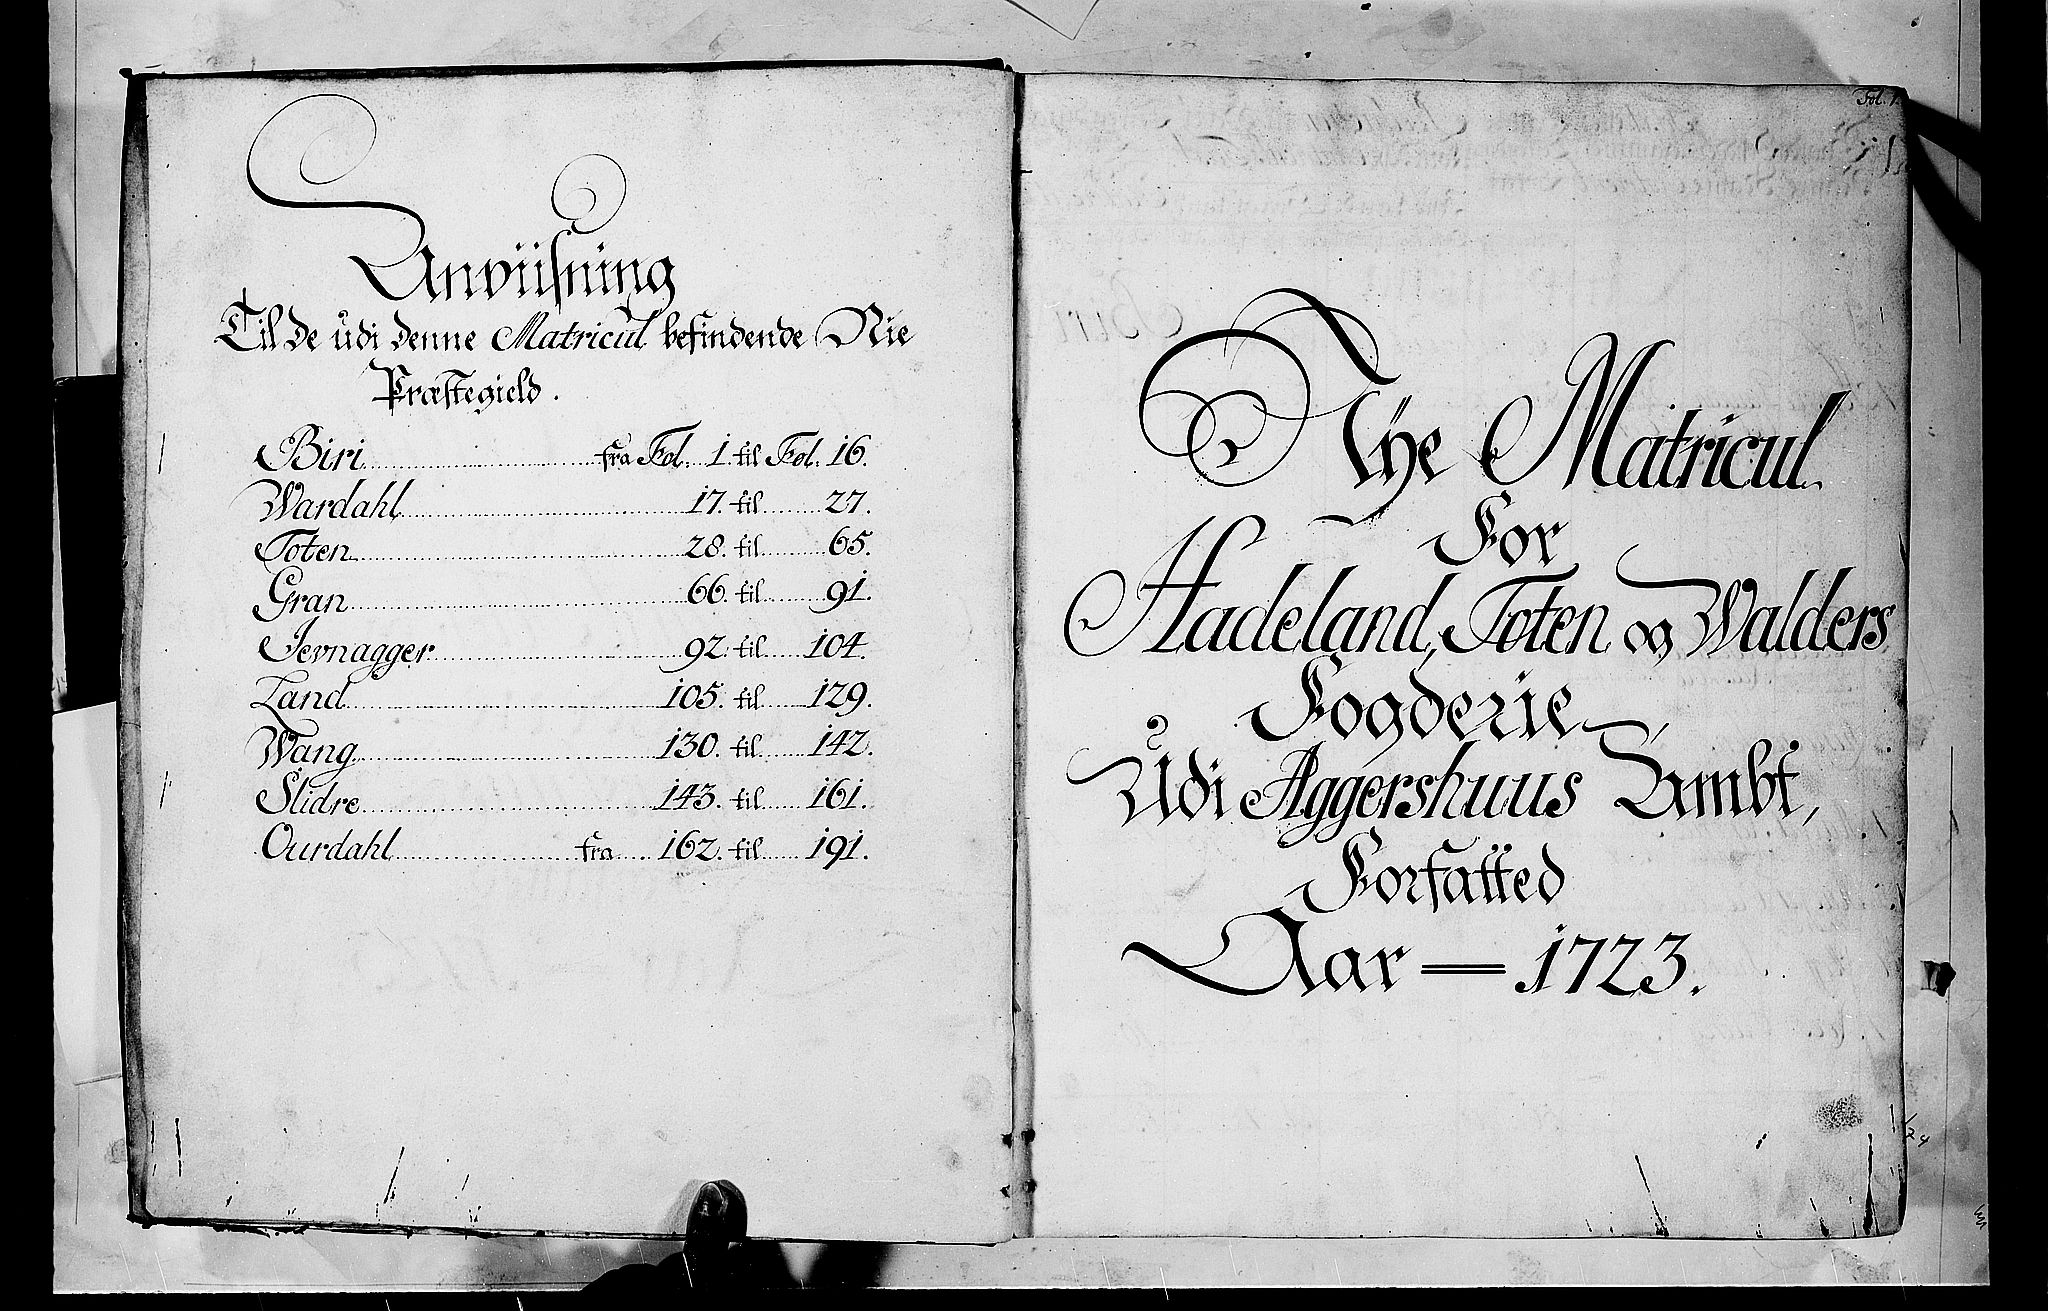 Anviisning
Til de udi denne Matricul befindende Nie
Præstegield.
Biri fra Fol. 1. til Fol. 16.
Wardahl 17. til 27.
Toten 28. til 65.
Gran 66. til 91.
Jevnagger 92. til 104.
Land 105. til 129.
Wang 130. til 142.
Slidre 143. til 161.
Ourdahl fra 162. til 191.
Fol. 1.
Nÿe Matricul
For
Hadeland, Toten og Walders
Fogderie
Udi Aggershuus Ambt,
Forfatted
Aar = 1723.